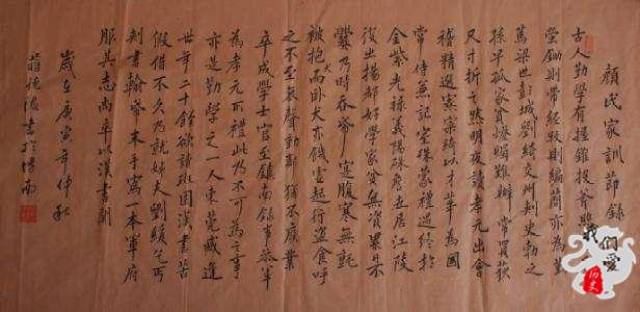 顏氏家訓節錄
古人勤學有握錐投斧照
螢鋤則帶經牧則編簡亦為勤
篤梁世彭城劉綺交州刺史勃之
孫早孤家貧燈燭難辦常買荻
尺寸折之然明夜讀孝元出會
稽精選寮寀綺以才華為國
常侍兼記室殊蒙禮遇終於
金紫光祿義陽朱詹世居江陵
後出揚都好學家貧無資累日不
爨乃時吞紙實腹寒無氈
被抱犬而臥犬亦饑虛起行盜食呼
之不至哀聲動鄰猶不廢業
卒成學士官至鎮南錄事參軍
為孝元所禮此乃不可為之事
亦是勤學之一人東莞臧逢
世年二十餘欲讀班固漢書苦
假借不久乃就姊夫劉緩乞丐
刺書翰紙末手寫一本軍府
服其志尚卒以漢書聞
歲在庚寅年仲秋
書於南
我們愛
历史